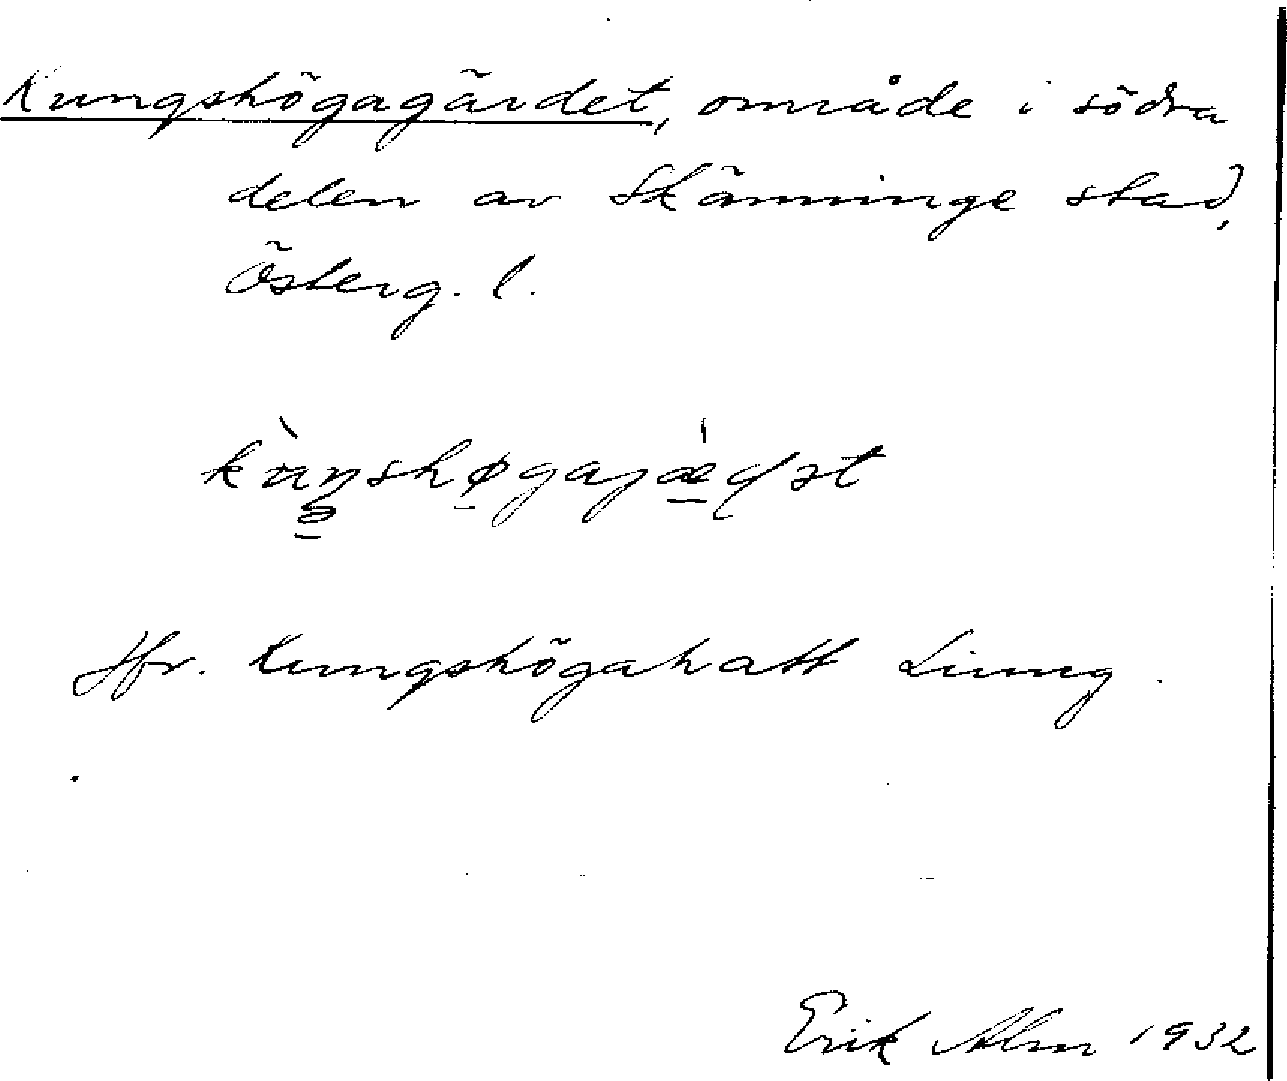 Kungshögagärdet, område i södra
delen av Skänninge stad,
Österg. l.
Jfr. Kungshögahatt Ljung.
Erik Alm 1932